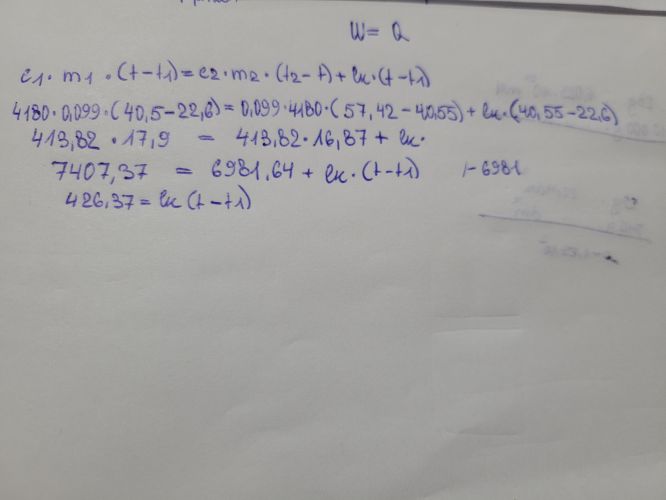 W = Q
c1 · m1 · (t-t1) = c2 · m2 · (t2-t) + lk · (t-t1)
4180 · 0,099 · (40,5-22,6) = 0,099 · 4180 · (57,42-40,55) + lk · (40,55-22,6)
413,82 · 17,9 = 413,82 · 16,87 + lk ·
7407,37 = 6981,64 + lk · (t-t1) /-6981
426,37 = lk (t-t1)